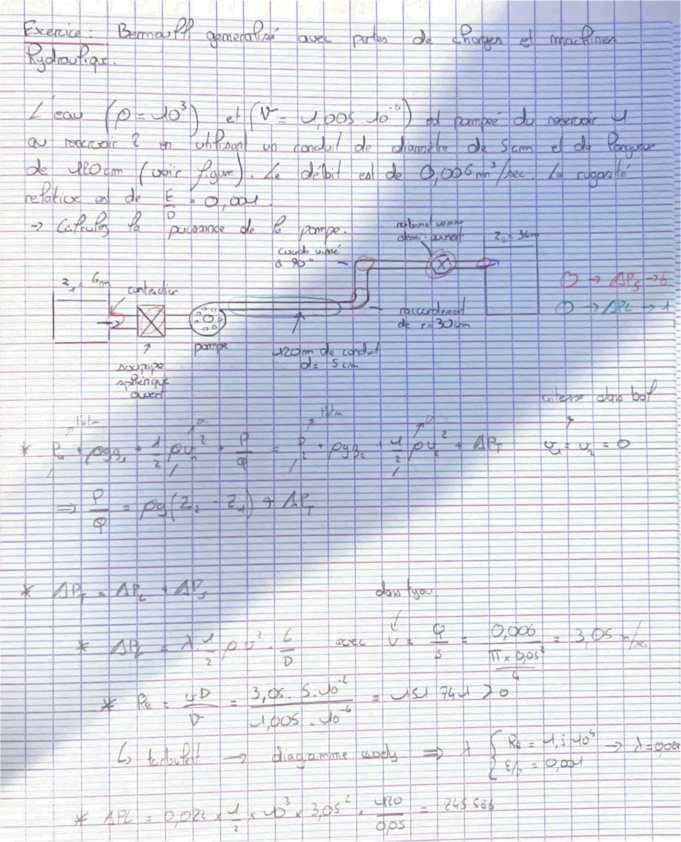 Exercice : Bernoulli generalisé avec pertes de charges et machines
hydraulique.
L'eau (ρ = 10³) et (ν = 1,005 . 10⁻⁶) est pompée du reservoir 1
au reservoir 2 en utilisant un conduit de diametre de 5 cm et de longueur
de 120 cm (voir figure). Le débit est de 0,006 m³/sec. La rugosité
relative est de ε/D = 0,001
→ Calculez la puissance de la pompe.
z₁ = 6m
contraction
coude
à 90°
robinet vanne
demi-ouvert
z₂ = 36m
→ ΔPs → 6
→ ΔPL → 1
soupape
sphérique
ouvert
pompe
120m de conduit
d = 5cm
raccordement
de r = 30cm
Patm
Patm
* P₁ + ρgz₁ + 1/2 ρv₁² + P/Q = P₂ + ρgz₂ + 1/2 ρv₂² + ΔPT
v₁ = v₂ = 0
⇒ P/Q = ρg(z₂ - z₁) + ΔPT
* ΔPT = ΔPL + ΔPs
dans tyau
* ΔPL = λ 1/2 ρ v² . L/D avec v = Q/S = 0,006 / (π × 0,05²/4) = 3,05 m/s
* Re = vD/ν = 3,05 . 5.10⁻² / 1,005 . 10⁻⁶ = 151 741 > 0
↳ turbulent → diagramme mody ⇒ λ { Re = 1,5 10⁵ ε/D = 0,001 →
* ΔPL = 0,022 × 1/2 × 10³ × 3,05² × 120/0,05 =